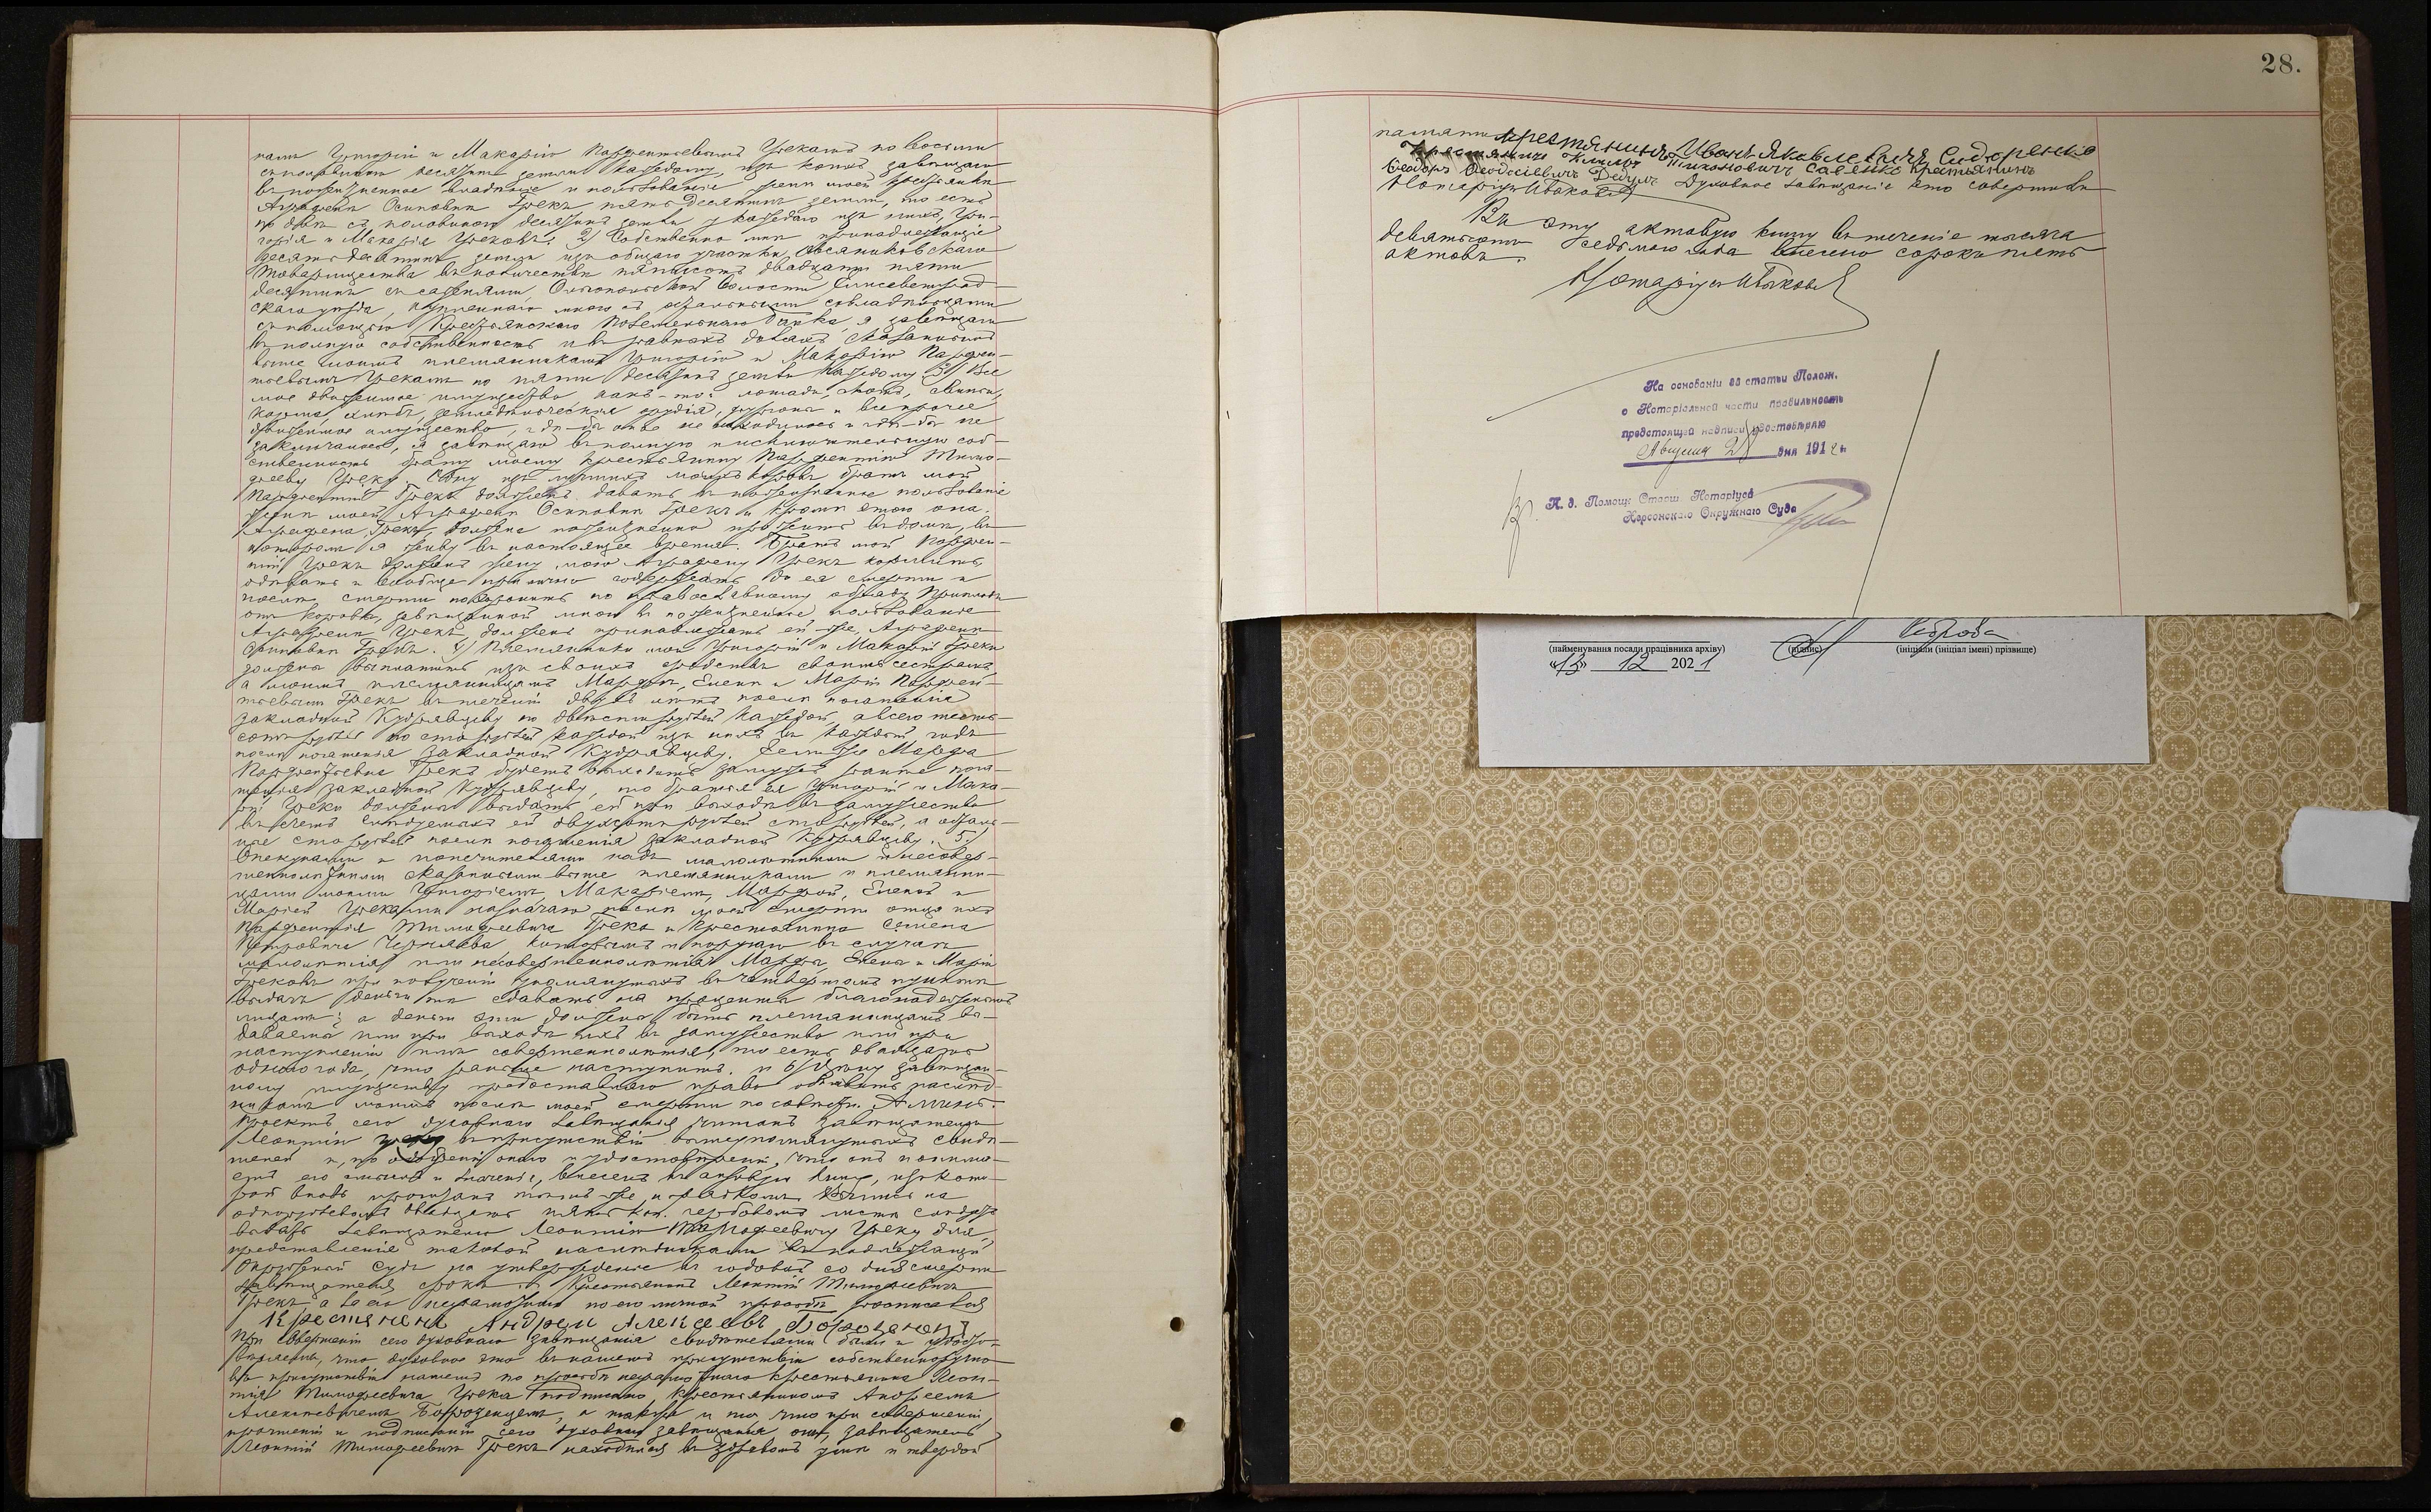 намъ Григорiю и Макарiю Парфентьевымъ Грекамъ по восьми
съ половиною десятинъ земли каждому, изъ коихъ завѣщаю
въ пожизненное владѣнiе и пользованiе женѣ моей крестьянкѣ
Аграфенѣ Осиповнѣ Грекъ пять десятинъ земли, то есть
по двѣ съ половиною десятинѣ земли у каждаго изъ нихъ, Гри-
горiя и Макарiя Грековъ; 2) Собственно мнѣ принадлежащiе
десять десятинъ земли изъ общаго участка, Овсяниковскаго
товарищества въ количествѣ пятьсотъ двадцати пяти
десятинъ съ саженями Ольгопольской волости Елисаветград-
скаго уѣзда, купленнаго мною съ остальными совладѣльцами
съ помощью Крестьянскаго Поземельнаго банка, я завѣщаю
въ полную собственность и въ равныхъ доляхъ сказаннымъ
выше моимъ племянникамъ Григорiю и Макарiю Парфен-
тьевымъ Грекамъ по пяти десятинъ земли каждому. 3) Все
мое движимое имущество, какъ-то: лошади, скотъ, свиньи,
хлѣбъ, земледѣльческiя орудiя, и все прочее
движимое имущество, гдѣ-бы оно не находилось и въ чемъ-бы не
заключалось, я завѣщаю въ полную и исключительную соб-
ственность брату моему крестьянину Парфентiю Тимо-
фееву Греку. Одну изъ лучшихъ моихъ коровъ братъ мой
Парфентiй Грекъ долженъ давать въ пожизненное пользованiе
женѣ моей Аграфенѣ Осиповнѣ Грекъ и кромѣ этого она,
Аграфена Грекъ, должна пожизненно прожить въ домѣ, въ
которомъ я живу въ настоящее время. Братъ мой Парфен-
тiй Грекъ долженъ жену мою Аграфену Грекъ кормить,
одѣвать и вообще прилично содержать до ея смерти и
послѣ смерти похоронить по православному обряду. Приплодъ
отъ коровы, завѣщанной мною въ пожизненное пользованiе
Аграфенѣ Грекъ, долженъ принадлежать ей-же, Аграфенѣ
Осиповнѣ Грекъ. 4) Племянники мои Григорiй и Макарiй Греки
должны выплатить изъ своихъ средствъ своимъ сестрамъ,
а моимъ племянницамъ Марфѣ, Еленѣ и Марiи Парфен-
тьевымъ Грекъ въ теченiи двухъ лѣтъ послѣ погашенiя
закладной Кудрявцеву по двѣсти рублей каждой, а всего шесть-
сотъ рублей по сто рублей каждой изъ нихъ въ каждый годъ
послѣ погашенiя закладной Кудрявцеву. Если-же Марфа
Парфентьевна Грекъ будетъ выходить замужъ ранѣе пога-
шенiя закладной Кудрявцеву, то братья ея Григорiй и Мака-
рiй Греки должны выдать ей при выходѣ въ замужество
въ счетъ слѣдуемыхъ ей двухсотъ рублей сто рублей, а осталь-
ные сто рублей послѣ погашенiя закладной Кудрявцеву. 5)
Опекунами и попечителями надъ малолѣтними и несовер-
шеннолѣтними сказанными выше племянниками и племянни-
цами моими Григорiемъ, Макарiемъ, Марфой, Еленой и
Марiей Греками назначаю послѣ моей смерти отца ихъ
Парфентiя Тимофеевича Грека и крестьянина Семена
Петровича Черняева, которымъ и поручаю въ случаѣ
малолѣтiя или несовершеннолѣтiя Марфы, Елены и Марiи
Грековъ при полученiи упомянутыхъ въ четвертомъ пунктѣ
выдачъ деньги эти отдавать на проценты благонадежнымъ
лицамъ; а деньги эти должны быть племянницамъ вы-
даваемы или при выходѣ ихъ въ замужество или при
наступленiи имъ совершеннолѣтiя, то есть двадцать
одного года, что раньше наступитъ. и 6) Цѣну завѣщан-
ному имуществу предоставляю право объявить наслѣд-
никамъ моимъ послѣ моей смерти по совѣсти. Аминь.
Проектъ сего духовнаго завѣщанiя читанъ завѣщателю
Леонтiю Греку въ присутствiи вышеупомянутыхъ свидѣ-
телей и, по одобренiи онаго и удостовѣренiи, что онъ понима-
етъ его смыслъ и значенiе, внесенъ въ актовую книгу, изъ кото-
рой вновь прочитанъ тѣмъ-же порядкомъ. Выпись на
однорублевомъ двадцать пять коп. гербовомъ листѣ слѣдуетъ
выдать завѣщателю Леонтiю Тимофеевичу Греку для
представленiя таковой наслѣдниками въ подлежащiй
Окружный Судъ на утвержденiе въ годовой со дня смерти
завѣщателя срокъ. Крестьянинъ Леонтiй Тимофеевичъ
Грекъ, а за его неграмотнаго по его личной просьбѣ росписался
Крестянинъ Андрей Алексеевъ Бороденец
При совершенiи сего духовнаго завѣщанiя свидѣтелями были и удосто-
вѣряемъ, что духовное это въ нашемъ присутствiи собственноручно
въ присутствiи нашемъ по просьбѣ неграмотнаго крестьянина Леон-
тiя Тимофеевича Грека подписано крестьяниномъ Андреемъ
Алексѣевичемъ Бороденцемъ, а также и то, что при совершенiи,
прочтенiи и подписанiи сего духовнаго завѣщанiя онъ, завѣщатель
Леонтiй Тимофеевичъ Грекъ находился въ здравомъ умѣ и твердой
28.
памяти Крестянинъ Иванъ Яковлевичъ Сидоренко
Тихоновичъ Савенко Крестьянинъ
Ѳеодоръ Ѳеодосiевичъ Дедулъ Духовное завѣщанiе это совершилъ
Нотарiусъ
Въ эту актовую книгу въ теченiе тысяча
девятьсотъ седьмого года внесено сорокъ пять
актовъ.
Нотарiусъ
На основанiи 23 статьи Полож.
о Нотарiальной части правильность
предстоящей надписи удостовѣряю
Августа 28 дня 1912 г.
И. д. Помощн. Старш. Нотарiуса
Херсонскаго Окружнаго Суда
(найменування посади працівника архіву) (підпис) (ініціали (ініціал імені) прізвище)
«13» 12 2021